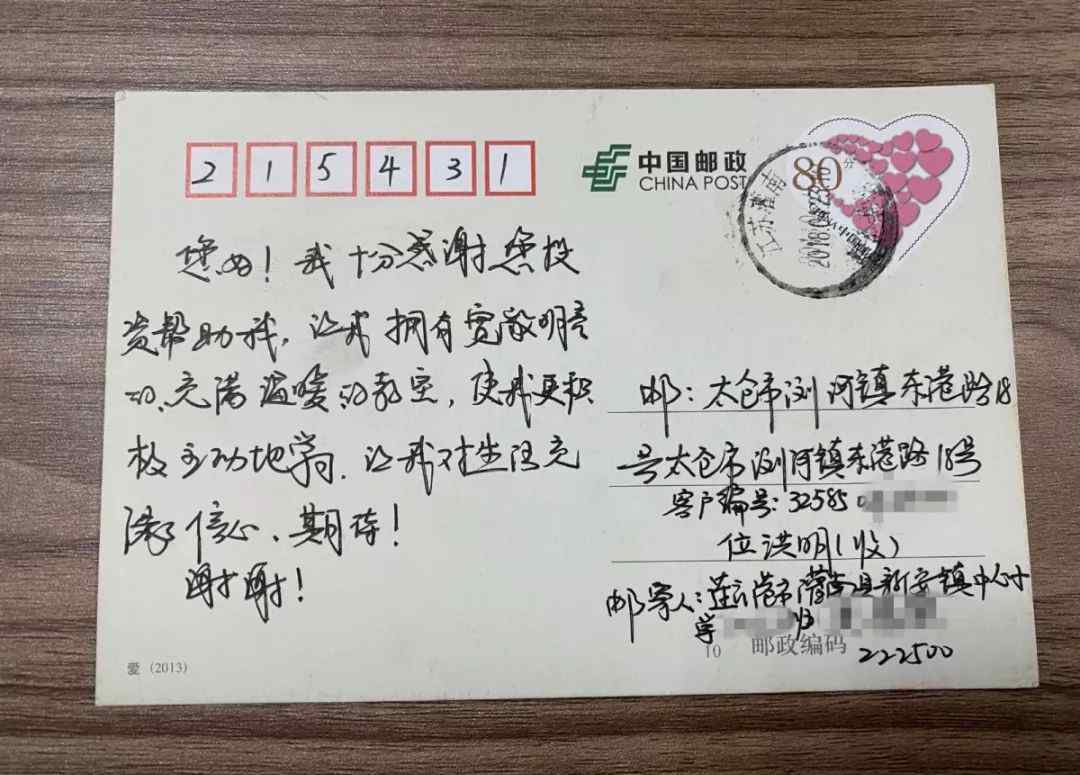 215431
中国邮政
CHINA POST
80分
江苏灌南
您好！我十分感谢您投
资帮助我，让我拥有宽敞明亮
的、充满温暖的教室，使我更积
极主动地学习，让我对生活充
满了信心、期待！
谢谢！
邮：太仓市浏河镇东港路18
号太仓市浏河镇东港路18号
客户编号：32585
位洪明（收）
邮寄人：连云港市灌南县新安镇中心小
学
班
10 邮政编码
222500
爱（2013）